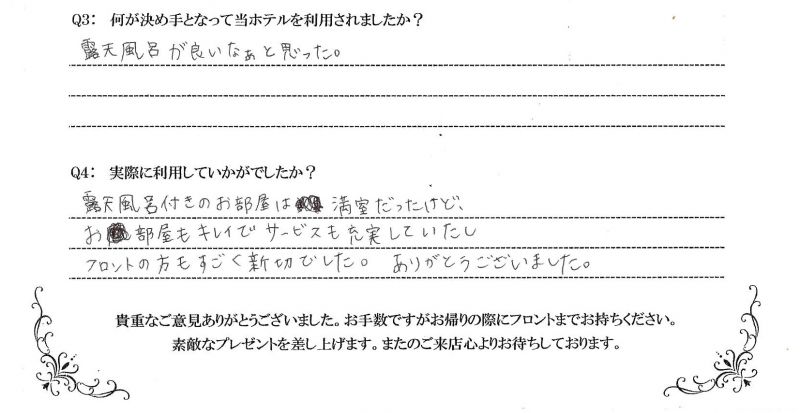 Q3: 何が決め手となって当ホテルを利用されましたか？
露天風呂が良いなぁと思った。
Q4: 実際に利用していかがでしたか？
露天風呂付きのお部屋は 満室だったけど、
お部屋もキレイでサービスも充実していたし
フロントの方もすごく新切でした。 ありがとうございました。
貴重なご意見ありがとうございました。お手数ですがお帰りの際にフロントまでお持ちください。
素敵なプレゼントを差し上げます。またのご来店心よりお待ちしております。